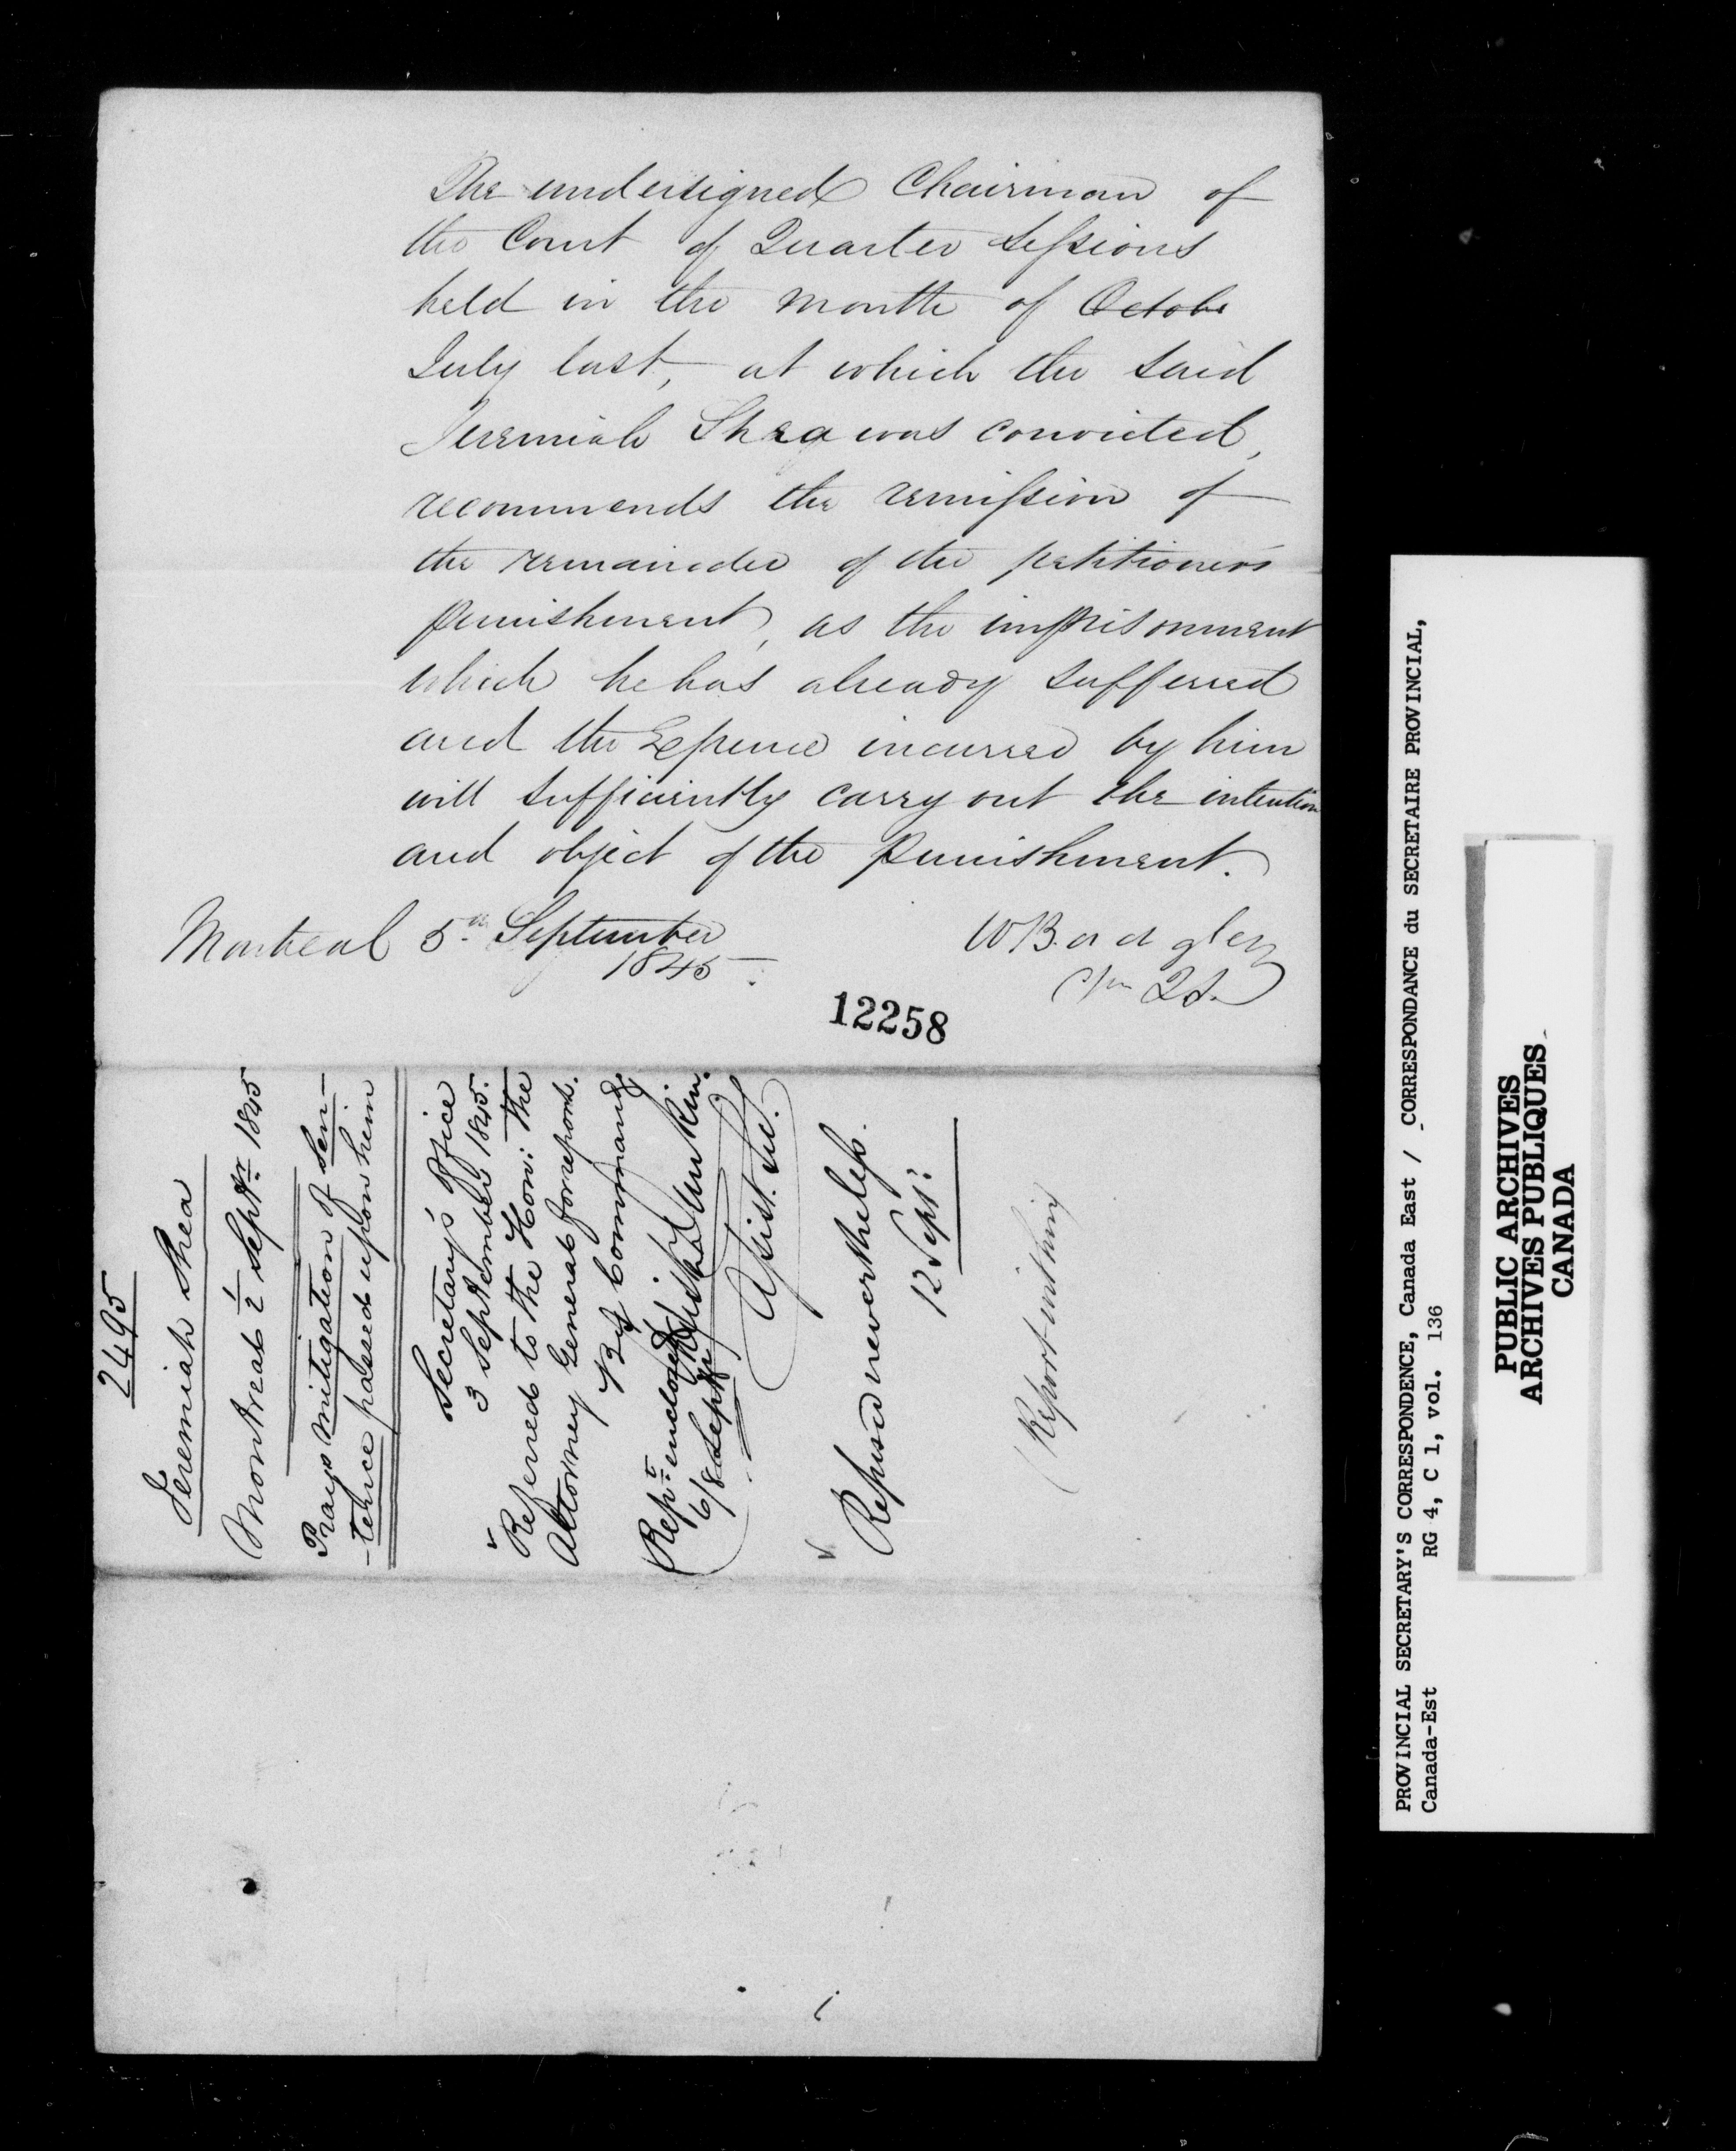 The undersigned Chairman of
the Court of Quarter Sessions
held in the month of Octobe
July last, at which the said
Jeremiah Shea was convicted,
recommends the remission of
the remainder of the petitioners
punishment, as the imprisonment
which he has already sufferred
and the Expence incurred by him
will sufficiently carry out the intention
and object of the punishment.
Montreal 5th September
1845
W Badgley
Chn QS.
12258
2495
Jeremiah Shea
Montreal 1/2 Septr 1845
Prays mitigation of Sen-
-tence passed upon him
Secretary's Office
3 September 1845.
Referred to the Hon: the
Attorney General for report.
By Command,
Assist. Sec.
Rept enclosed
6/8 Septr
Refused nevertheless.
12 Sept.
(Report within)
PROVINCIAL SECRETARY'S CORRESPONDENCE, Canada East / CORRESPONDANCE du SECRETAIRE PROVINCIAL,
Canada-Est RG 4, C 1, vol. 136
PUBLIC ARCHIVES
ARCHIVES PUBLIQUES
CANADA